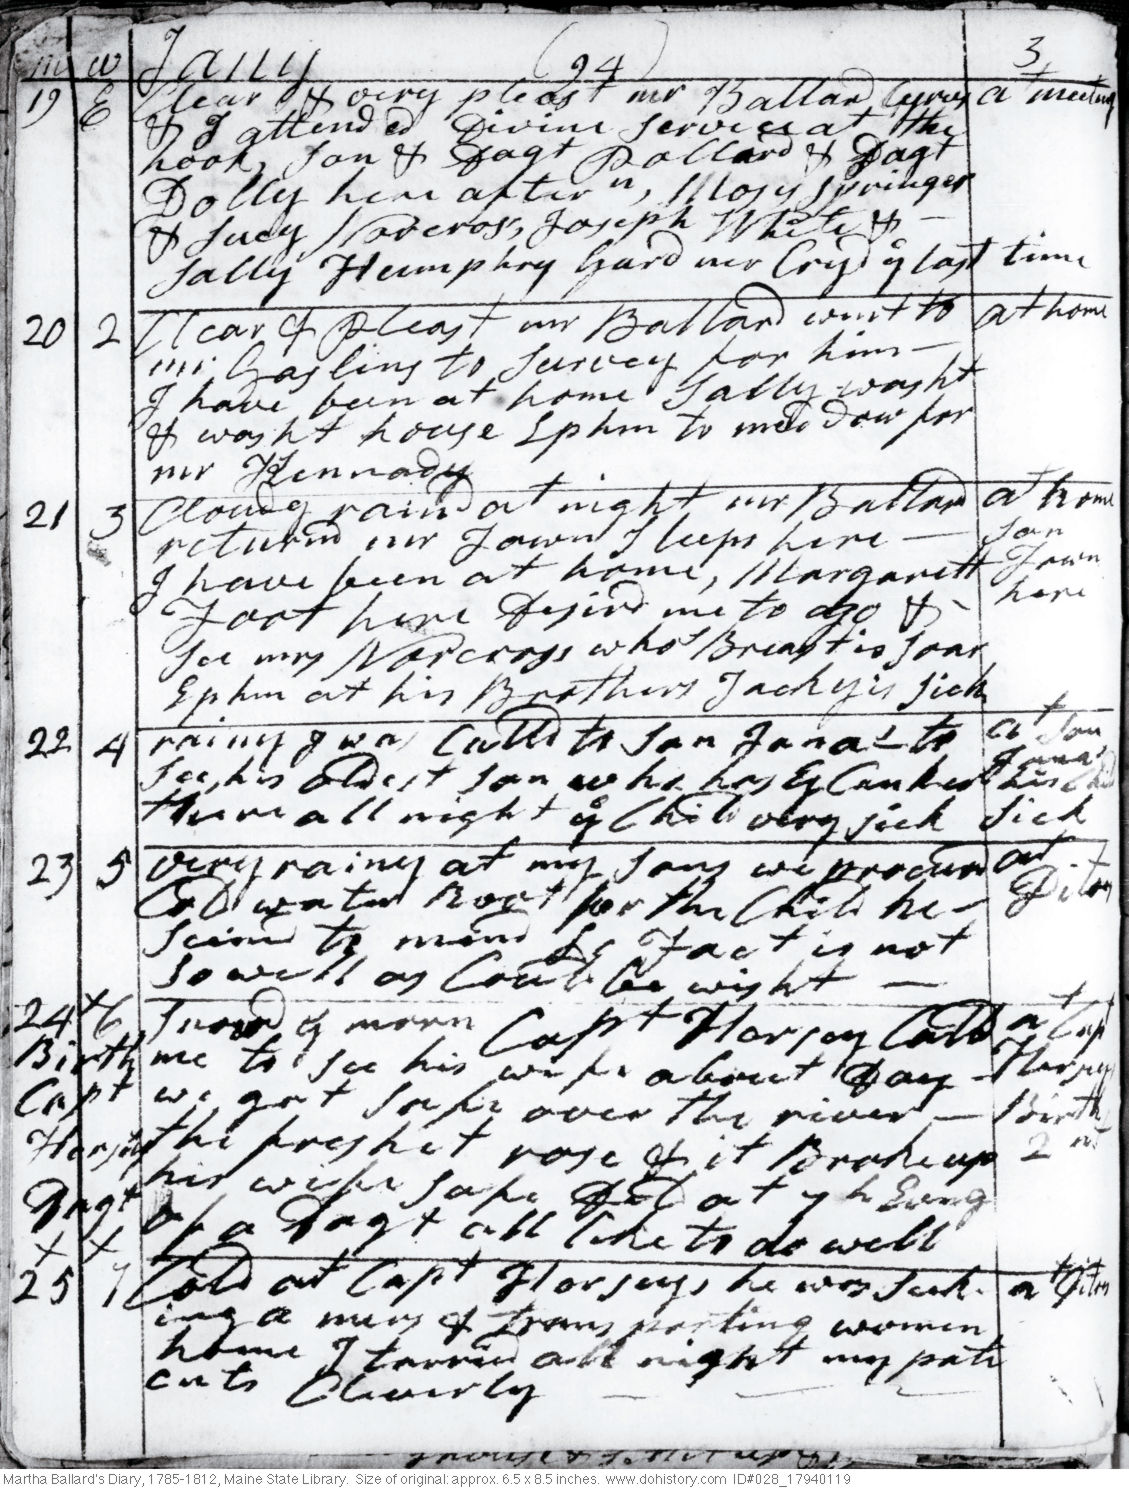 m w Jany (94) 3
19 E Clear & very pleast mr Ballard Cyrus a^t meeting
& I attended Divine Service at the
hook, Son & Dagt Pollard & Dagt
Dolly here aftern, Moses Springer
& Lucy Norcros, Joseph White & —
Sally Humphry hard mr Cryd ye last time
20 2 Clear & Pleast mr Ballard went to at home
mr Gaslins to Survey for him —
I have been at home Sally washt
& washt house Ephm to meddow for
mr Kennady
21 3 Cloudy raind at night mr Ballard at home
returnd mr Town Sleeps here — Son
I have been at home, Margarett Town
Foot here Desird me to go & - here
See mrs Norcross who's Breast is Soar
Ephm at his Brothers Jacky is Sick
22 4 rainy I was Calld to Son Jonas to at Son
See his oldest Son who has ye Canker Jonas' his Child
there all night ye Child very sick Sick
23 5 very rainy at my Sons we procurd at
Cold water Root for the Child he — Ditos
Seemd to mend Le Fact is not
So well as Could be wisht —
24 x 6 Snowd ye morn Capt Horsey Calld at Capt
Birth me to See his wife about Day - Horseys
Capt we got Safe over the river — Birth
Horsey the freshet rose & it Broke up 2 nd
his wife Safe Dld at 7 h Evng
Dagt of a Dagt all like to do well
x x
25 7 Cold at Capt Horseys he was Seek- at Ditos
ing a mers of transporting women
home I tarried all night my pati
ents Cleverly —
Martha Ballard's Diary, 1785-1812, Maine State Library. Size of original: approx. 6.5 x 8.5 inches. www.dohistory.com ID#028_17940119